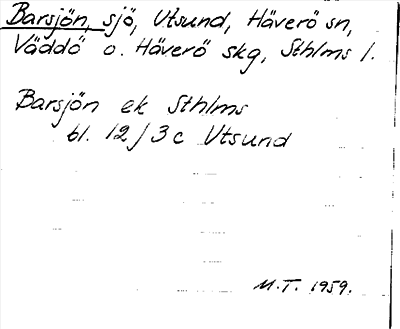 Barsjön, sjö, Utsund, Häverö sn,
Väddö o. Häverö skg, Sthlms l.
Barsjön ek Sthlms
bl. 12/3c Utsund
M.T. 1959.